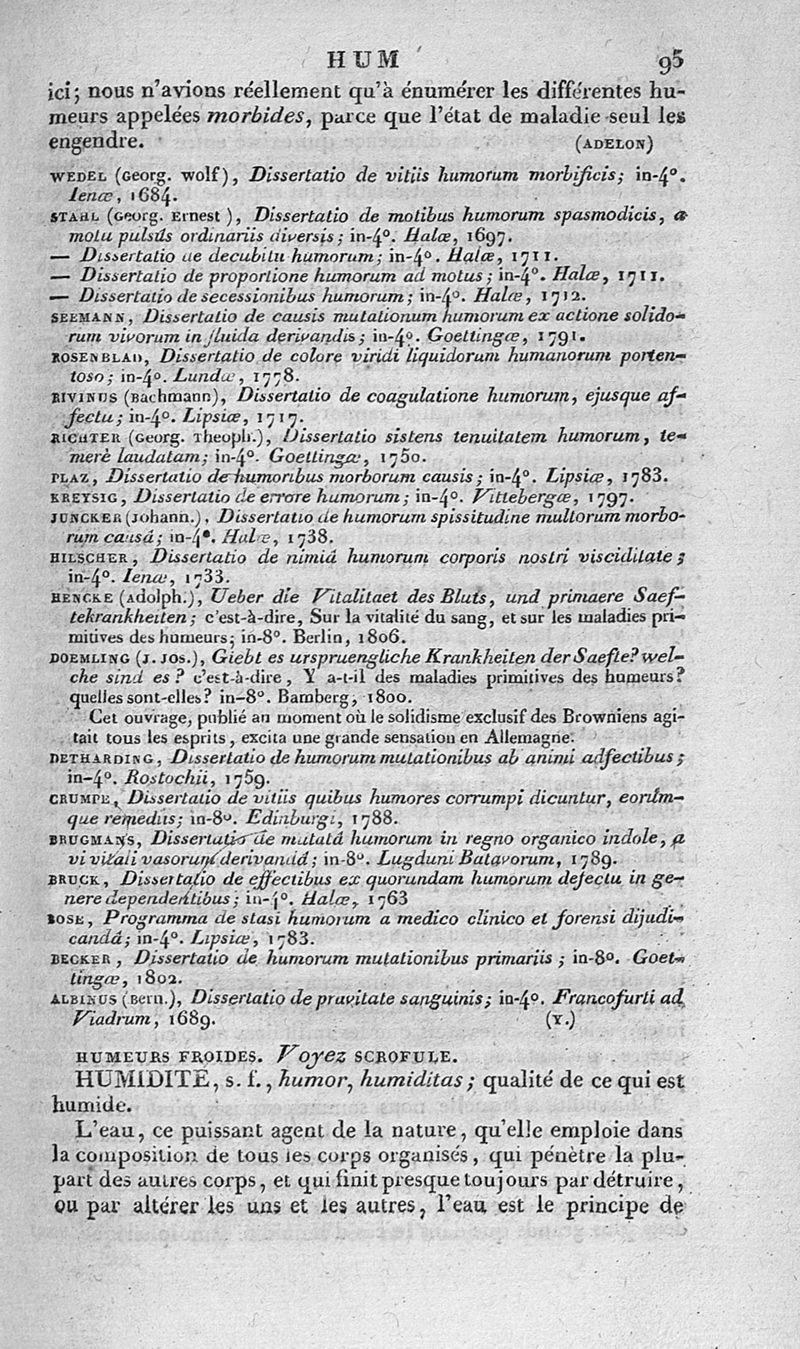 HUM 95
ici; nous n'avions réellement qu'à énumérer les différentes hu-
meurs appelées morbides, parce que l'état de maladie seul les
engendre. (ADELON)
WEDEL (Georg. wolf), Dissertatio de vitiis humorum morbificis; in-4°.
Ienœ, 1684.
STAHL (Georg. Ernest), Dissertatio de motibus humorum spasmodicis, a
motu pulsûs ordinariis diversis; in-4°. Halœ, 1697.
— Dissertatio de decubitu humorum; in-4°. Halœ, 1711.
— Dissertatio de proportione humorum ad motus; in-4°. Halœ, 1711.
— Dissertatio de secessionibus humorum; in-4°. Halœ, 1712.
SEEMANN, Dissertatio de causis mutationum humorum ex actione solido-
rum vivorum in fluida derivandis; in-4°. Goettingœ, 1791.
ROSENBLAD, Dissertatio de colore viridi liquidorum humanorum porten-
toso; in-4°. Lundœ, 1778.
RIVINUS (Bachmann), Dissertatio de coagulatione humorum, ejusque af-
fectu; in-4°. Lipsiœ, 1717.
RICHTER (Georg. Theoph.), Dissertatio sistens tenuitatem humorum, te-
merè laudatam; in-4°. Goettingœ, 1750.
PLAZ, Dissertatio de humoribus morborum causis; in-4°. Lipsiœ, 1783.
KREYSIG, Dissertatio de errore humorum; in-4°. Vittebergœ, 1797.
JUNCKER (Johann.), Dissertatio de humorum spissitudine multorum morbo-
rum causâ; in-4°. Halœ, 1738.
HILSCHER, Dissertatio de nimiâ humorum corporis nostri visciditate;
in-4°. Ienœ, 1733.
HENCKE (Adolph.), Ueber die Vitalitaet des Bluts, und primaere Saef-
tekrankheiten; c'est-à-dire, Sur la vitalité du sang, et sur les maladies pri-
mitives des humeurs; in-8°. Berlin, 1806.
DOEMLING (J. Jos.), Giebt es urspruengliche Krankheiten der Saefte? wel-
che sind es? c'est-à-dire, Y a-t-il des maladies primitives des humeurs?
quelles sont-elles? in-8°. Bamberg, 1800.
Cet ouvrage, publié au moment où le solidisme exclusif des Browniens agi-
tait tous les esprits, excita une grande sensation en Allemagne.
DETHARDING, Dissertatio de humorum mutationibus ab animi adfectibus;
in-4°. Rostochii, 1759.
CRUMPE, Dissertatio de vitiis quibus humores corrumpi dicuntur, eorum-
que remediis; in-8°. Edinburgi, 1788.
BRUGMANS, Dissertatio de mutatâ humorum in regno organico indole, a
vi vitali vasorum derivandâ; in-8°. Lugduni Batavorum, 1789.
BRUCK, Dissertatio de effectibus ex quorundam humorum dejectu in ge-
nere dependentibus; in-4°. Halœ, 1763
BOSE, Programma de stasi humorum a medico clinico et forensi dijudi-
candâ; in-4°. Lipsiœ, 1783.
BECKER, Dissertatio de humorum mutationibus primariis; in-8°. Goet-
tingœ, 1802.
ALBINUS (Bern.), Dissertatio de pravitate sanguinis; in-4°. Francofurti ad
Viadrum, 1689. (V.)
HUMEURS FROIDES. Voyez SCROFULE.
HUMIDITÉ, s. f., humor, humiditas; qualité de ce qui est
humide.
L'eau, ce puissant agent de la nature, qu'elle emploie dans
la composition de tous les corps organisés, qui pénètre la plu-
part des autres corps, et qui finit presque toujours par détruire,
ou par altérer les uns et les autres, l'eau est le principe de